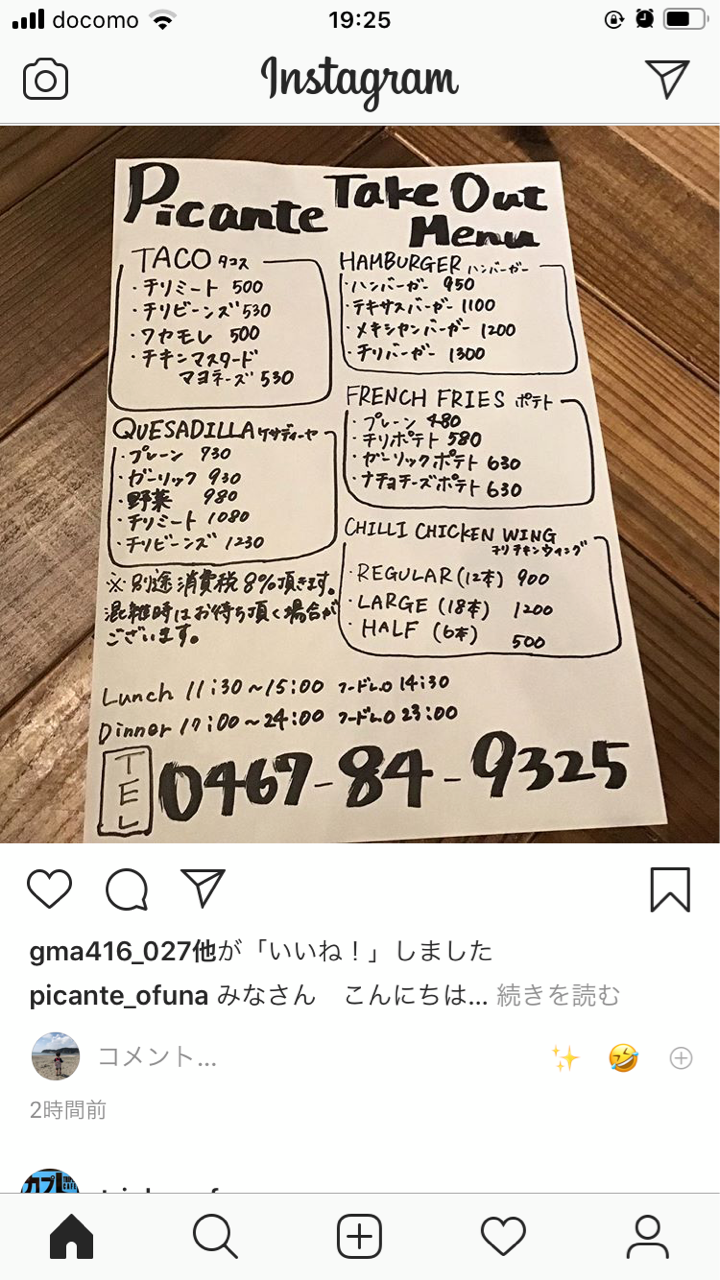 docomo
19:25
Instagram
Picante Take Out
Menu
TACO タコス
・チリミート 500
・チリビーンズ 530
・ワカモレ 500
・チキンマスタード
マヨネーズ 530
QUESADILLA ケサディーヤ
・プレーン 730
・ガーリック 930
・野菜 980
・チリミート 1080
・チリビーンズ 1230
※別途消費税8%頂きます。
混雑時はお待ち頂く場合が
ございます。
HAMBURGER ハンバーガー
・ハンバーガー 950
・テキサスバーガー 1100
・メキシカンバーガー 1200
・チリバーガー 1300
FRENCH FRIES ポテト
・プレーン 480
・チリポテト 580
・ガーリックポテト 630
・ナチョチーズポテト 630
CHILLI CHICKEN WING
チリチキンウィング
・REGULAR (12本) 900
・LARGE (18本) 1200
・HALF (6本) 500
Lunch 11:30~15:00 フードL.O 14:30
Dinner 17:00~24:00 フードL.O 23:00
TEL 0467-84-9325
gma416_027他が「いいね！」しました
picante_ofuna みなさん こんにちは... 続きを読む
コメント...
2時間前